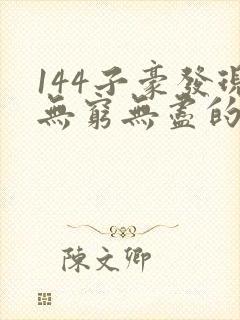 144子豪發現
無窮無盡的
陳文卿